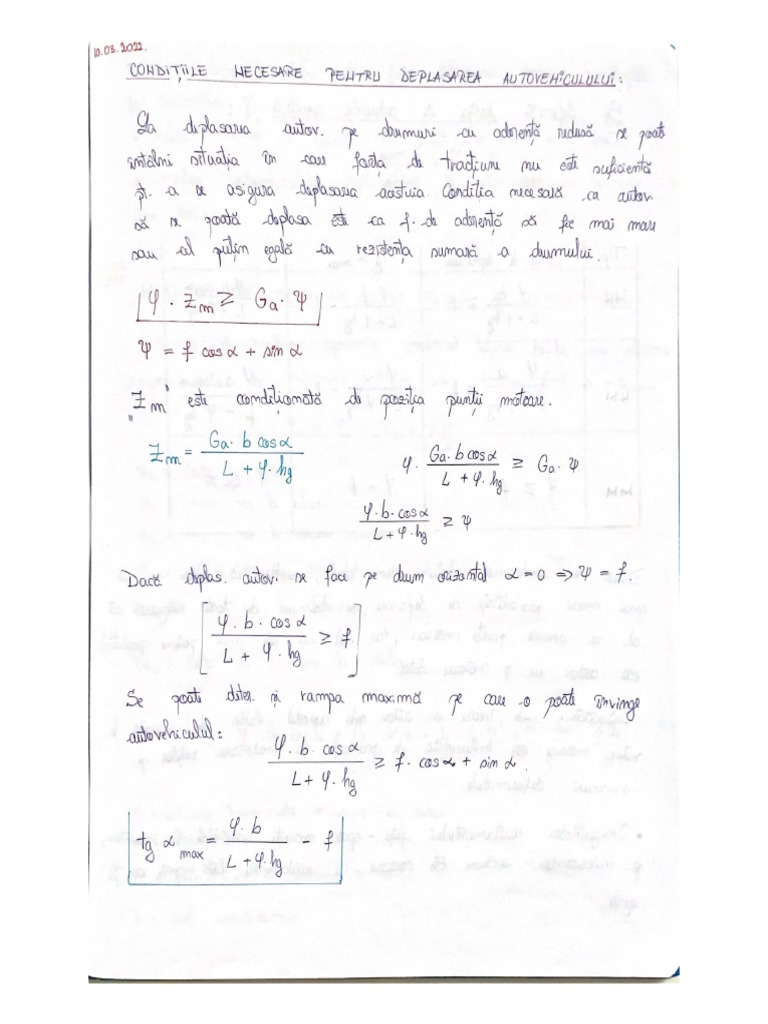 10.03.2022.
CONDIȚIILE NECESARE PENTRU DEPLASAREA AUTOVEHICULULUI:
La deplasarea autov. pe drumuri cu aderență redusă se poate
întâlni situația în care forța de tracțiune nu este suficientă
pt. a se asigura deplasarea acestuia Condiția necesară ca autov
să se poată deplasa este ca f. de aderență să fie mai mare
sau cel puțin egală cu rezistența sumară a drumului.
φ · Zm ≥ Ga · Ψ
Ψ = f cos α + sin α
„Zm" este condiționată de poziția punții motoare.
Zm = Ga · b cos α / L + φ · hg
φ · Ga · b cos α / L + φ · hg ≥ Ga · Ψ
φ · b · cos α / L + φ · hg ≥ Ψ
Dacă deplas. autov. se face pe drum orizontal α = 0 ⇒ Ψ = f.
[φ · b · cos α / L + φ · hg ≥ f]
Se poate deter. și rampa maximă pe care o poate învinge
autovehiculul:
φ · b · cos α / L + φ · hg ≥ f · cos α + sin α.
tg α max = φ · b / L + φ · hg − f